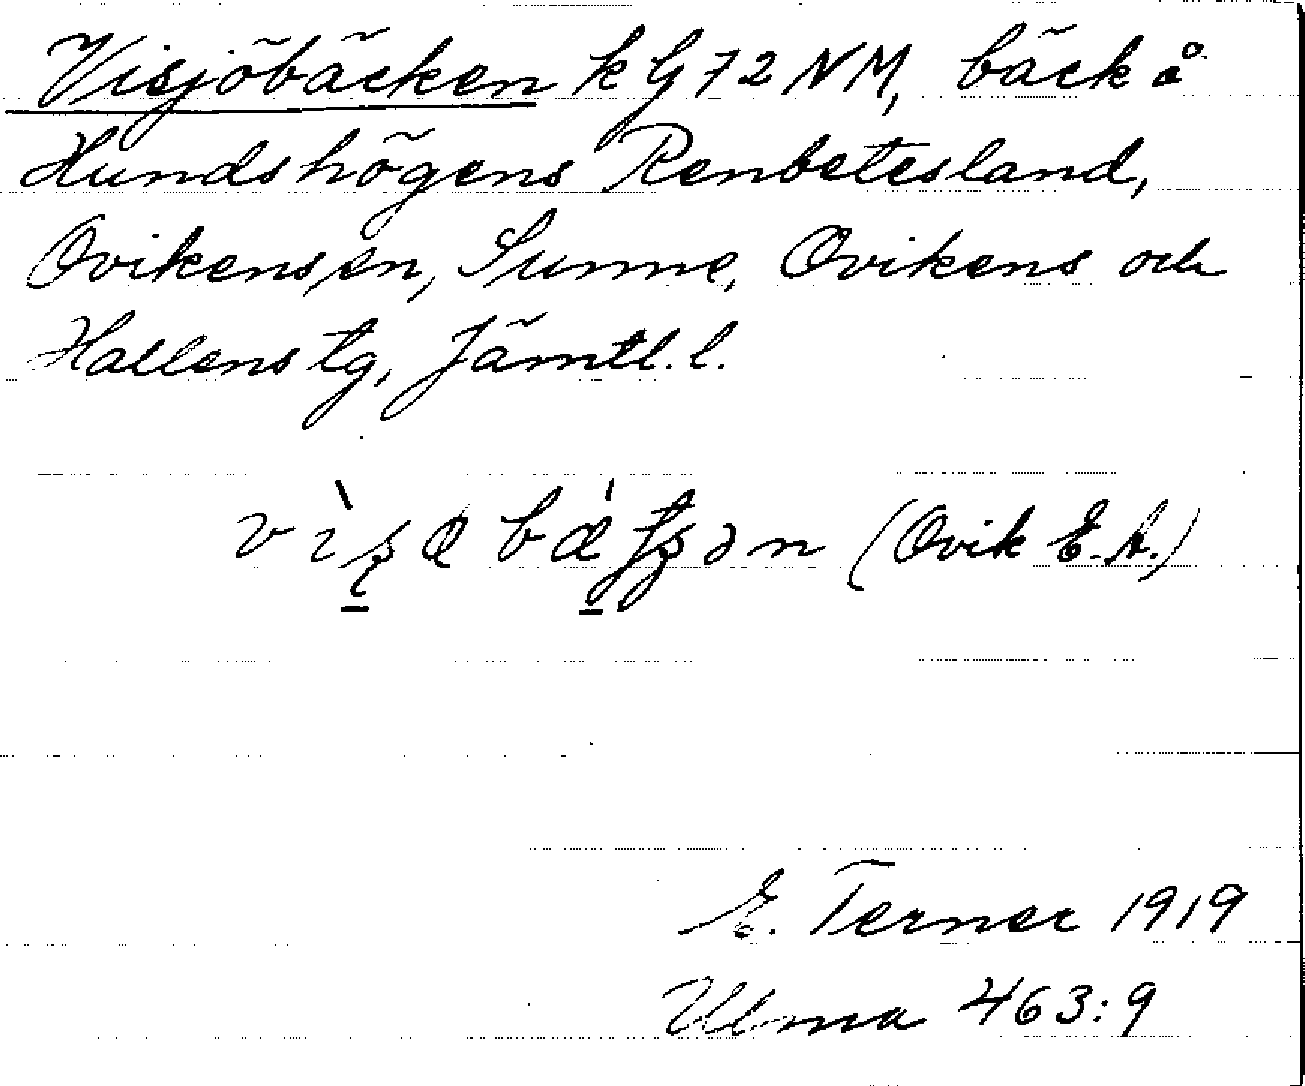 Visjöbäcken k G 72 NM, bäck å
Hundshögens Renbetesland,
Ovikens sn, Sunne, Ovikens och
Hallens tg, Jämtl. l.
(Ovik E. A.)
E. Terner 1919
Ulma 463:9